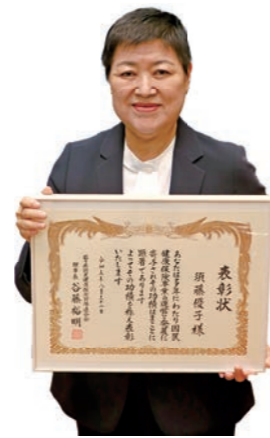 表彰状
須藤優子様
あなたは多年にわたり国民
健康保険事業の運営と発展に
寄与されその功績はまことに
顕著であります
よってその功績を称え表彰
いたします
理事長 谷藤裕明